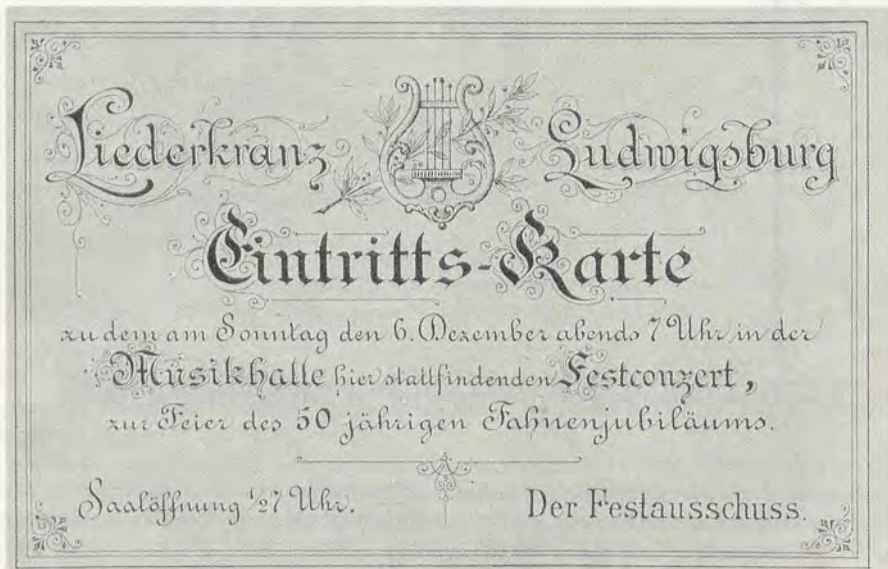 Liederkranz Ludwigsburg
Eintritts-Karte
zu dem am Sonntag den 6. Dezember abends 7 Uhr in der
Musikhalle hier stattfindenden Festconzert,
zur Feier des 50 jährigen Fahnenjubiläums.
Saalöffnung ½7 Uhr. Der Festausschuss.